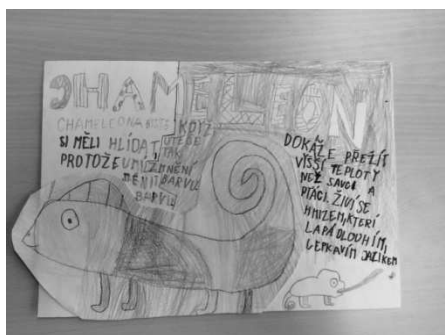 CHAMELEON
CHAMELEONA BYSTE
SI MĚLI HLÍDAT
PROTOŽE UMÍ
MĚNIT
BARVU
KDYŽ
UTEČE
TAK
ZMĚNÍ
BARVU
DOKÁŽE PŘEŽÍT
VYŠŠÍ TEPLOTY
NEŽ SAVCI A
PTÁCI. ŽIVÍ SE
HMIZEM, KTERÍ
LAPÁ DLOUHÍM,
LEPKAVÍM JAZIKEM